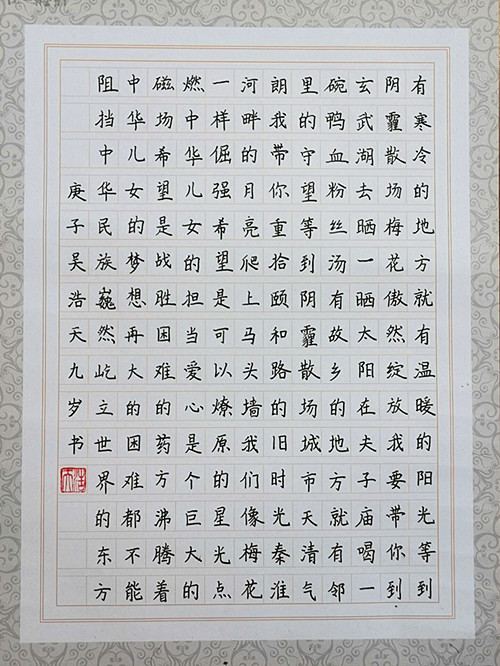 有寒冷的地方就有温暖的阳光等到
阴霾散场梅花傲然绽放我要带你到
玄武湖去晒一晒太阳在夫子庙喝一
碗鸭血粉丝汤有故乡的地方就有邻
里的守望等到阴霾散场城市天清气
朗我带你重拾颐和路的旧时光秦淮
河畔的月亮爬上马头墙我们像梅花
一样倔强希望是可以燎原的星光点
燃中华儿女的担当爱心是个巨大的
磁场希望是战胜困难的药方沸腾着
中华儿女的梦想再大的困难都不能
阻挡中华民族巍然屹立世界的东方
庚子吴浩天九岁书
浩天